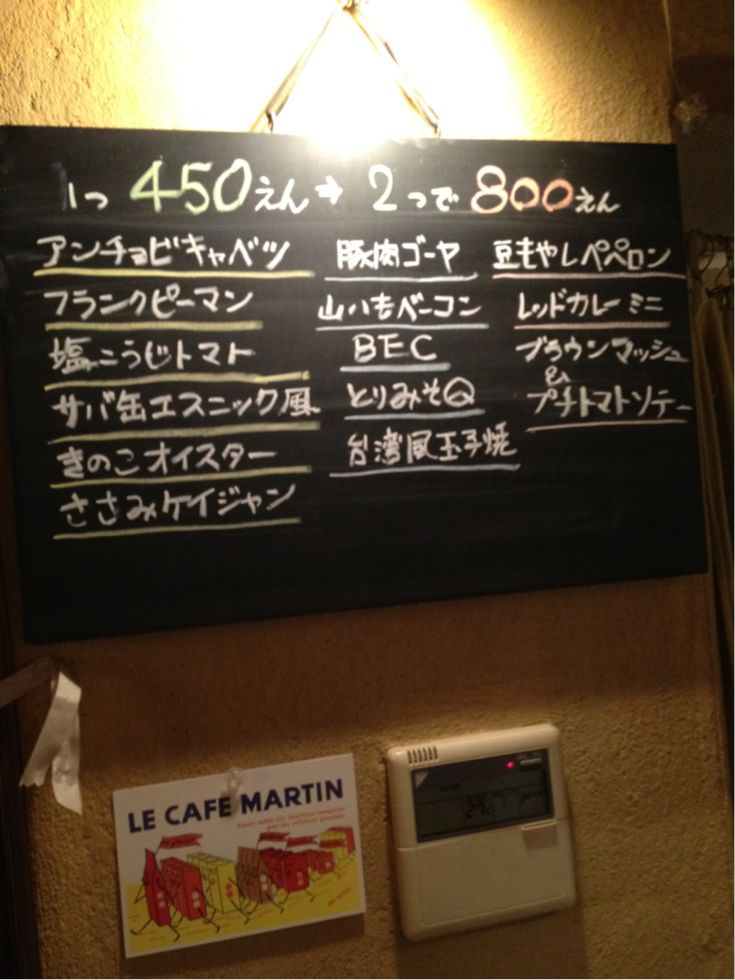 1つ 450えん→2つで800えん
アンチョビキャベツ
フランクピーマン
塩こうじトマト
サバ缶エスニック風
きのこオイスター
ささみケイジャン
豚肉ゴーヤ
山いもベーコン
BEC
とりみそQ
台湾風玉子焼
豆もやしペペロン
レッドカレーミニ
ブラウンマッシュ
&
プチトマトソテー
LE CAFE MARTIN